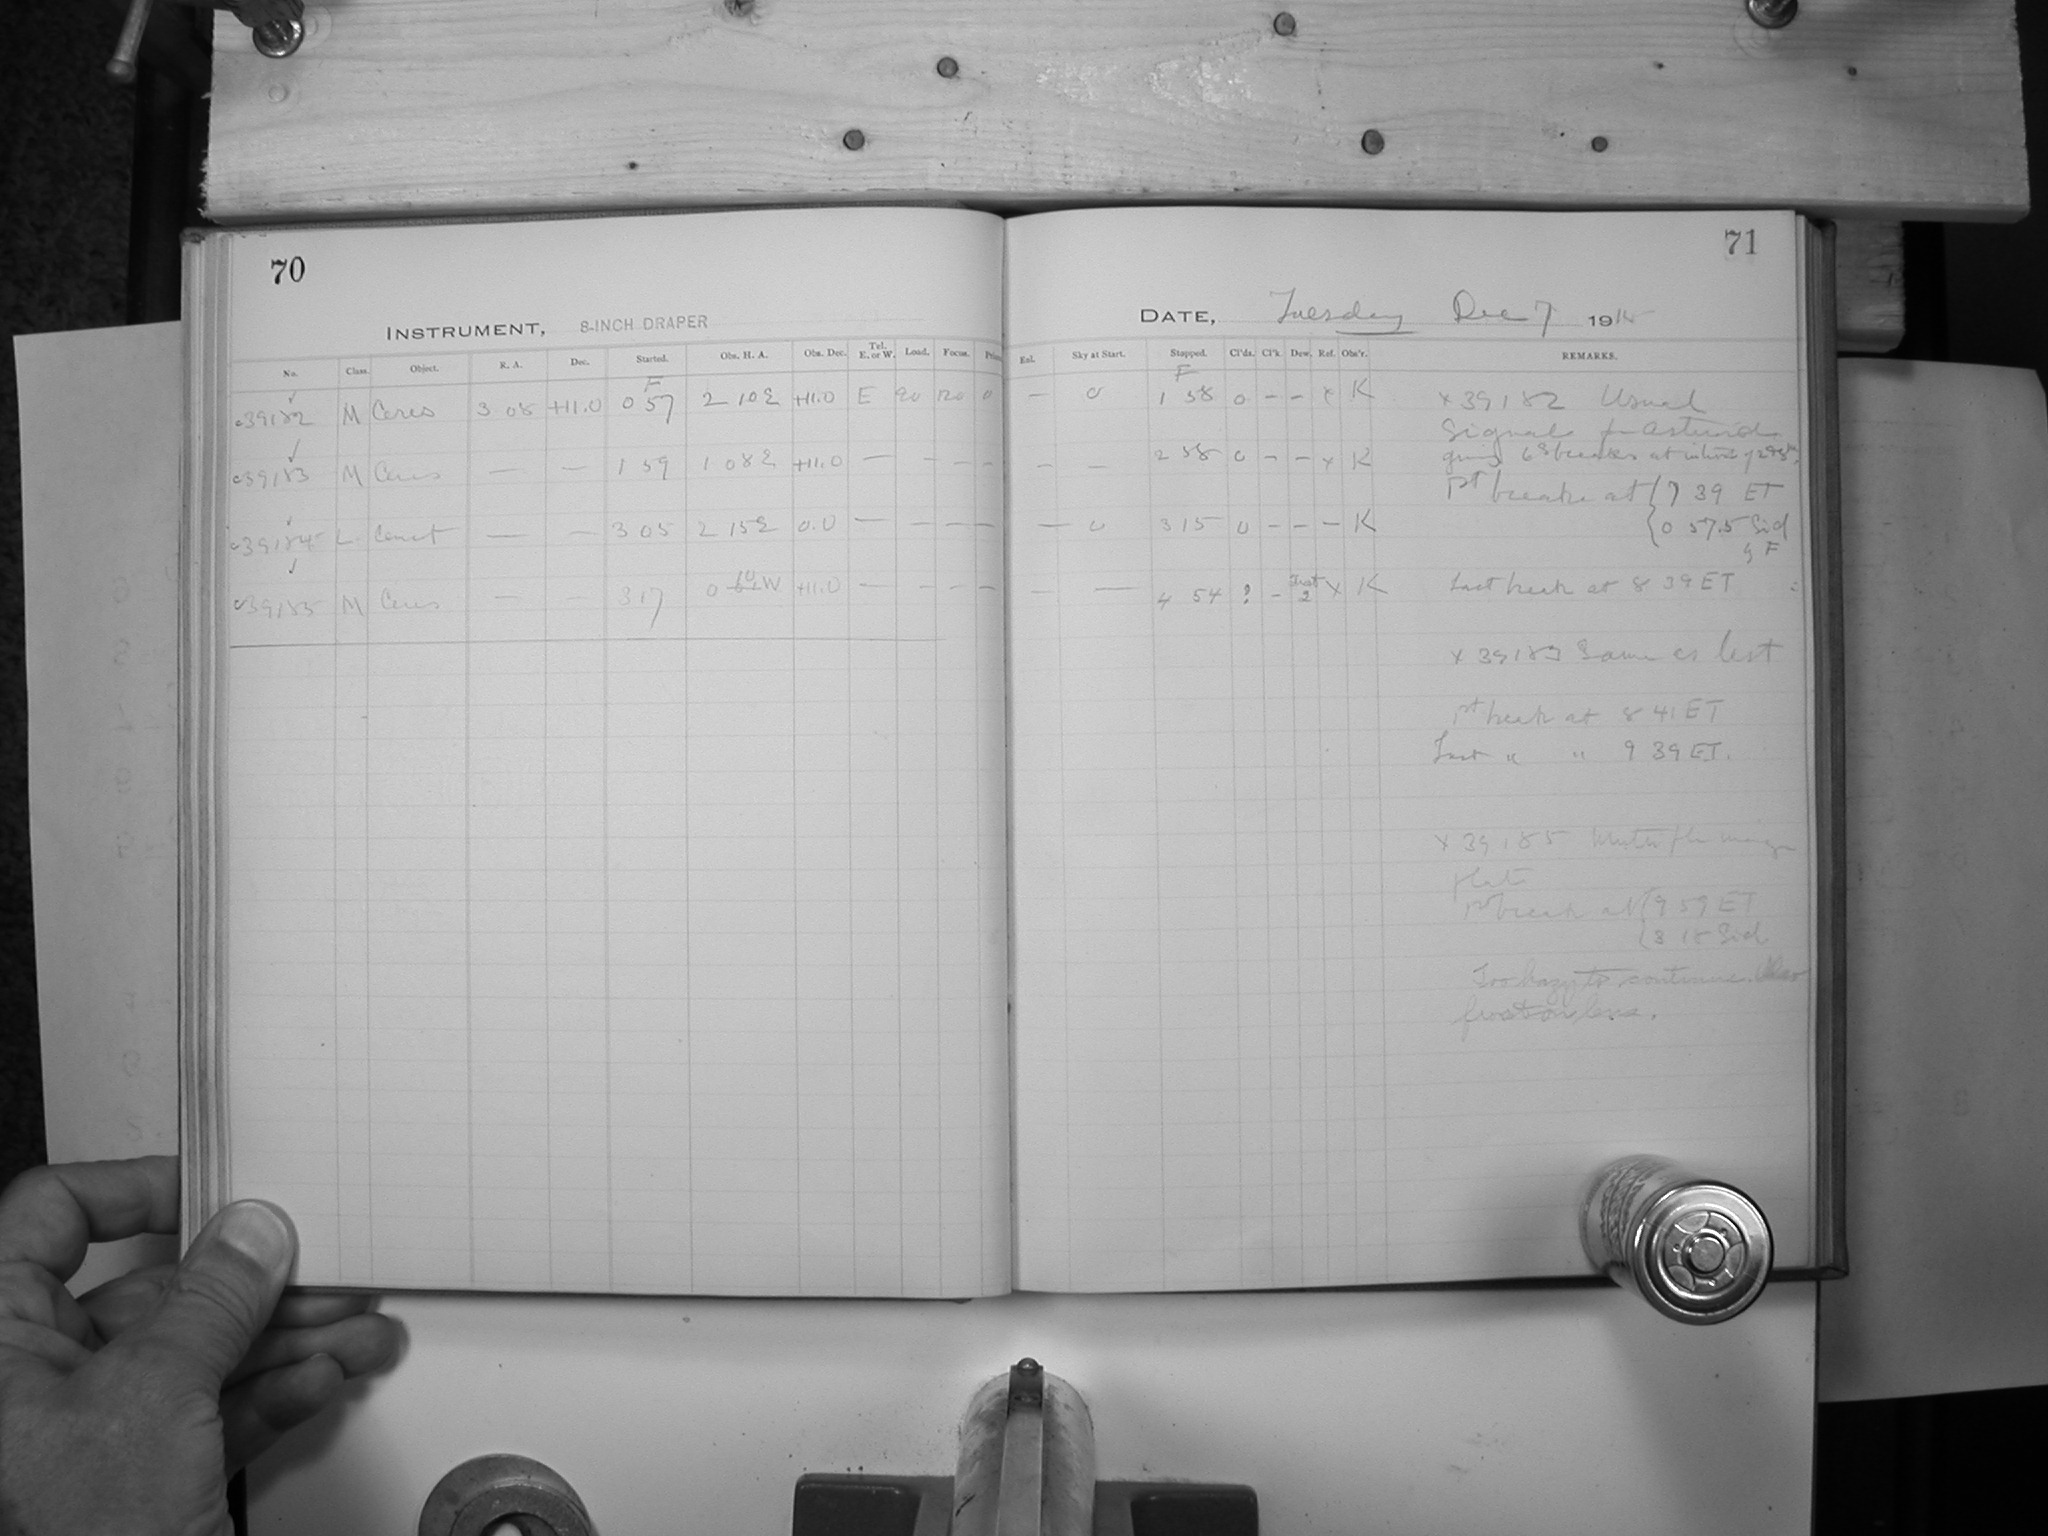 70
INSTRUMENT, 8-INCH DRAPER
No. Class. Object. R. A. Dec. Started. Obs. H. A. Obs. Dec. Tel. E. or W. Load. Focus.
c39182 M Ceres 3 08 +11.0 0 57 F 2 10E +11.0 E 20 120 0
c39183 M Ceres — — 1 59 1 08E +11.0 — – – –
c39184 L Comet — — 3 05 2 15E 0.0 — – – –
c39185 M Ceres — — 3 17 0 10W +11.0 — – – –
71
DATE, Tuesday Dec 7 1915
Ext. Sky at Start. Stopped. Cl'ds. Cl'k. Dew. Ref. Obs'r. REMARKS.
— 0 1 58 F 0 – – x K
– – 2 58 0 – – x K
— 0 3 15 0 – – – K
– — 4 54 ? – Frost 2 x K
x 39182 Usual
signal for asteroid
giving 6 breaks at
1st break at { 7 39 ET
{ 0 57.5 Sid
F
Last break at 8 39 ET
x 39183 Same as last
1st break at 8 41 ET
Last " " 9 39 ET.
x 39185
plate
1st break at { 9 59 ET
{ 3 18 Sid
Too hazy to continue. Also
frost on lens.